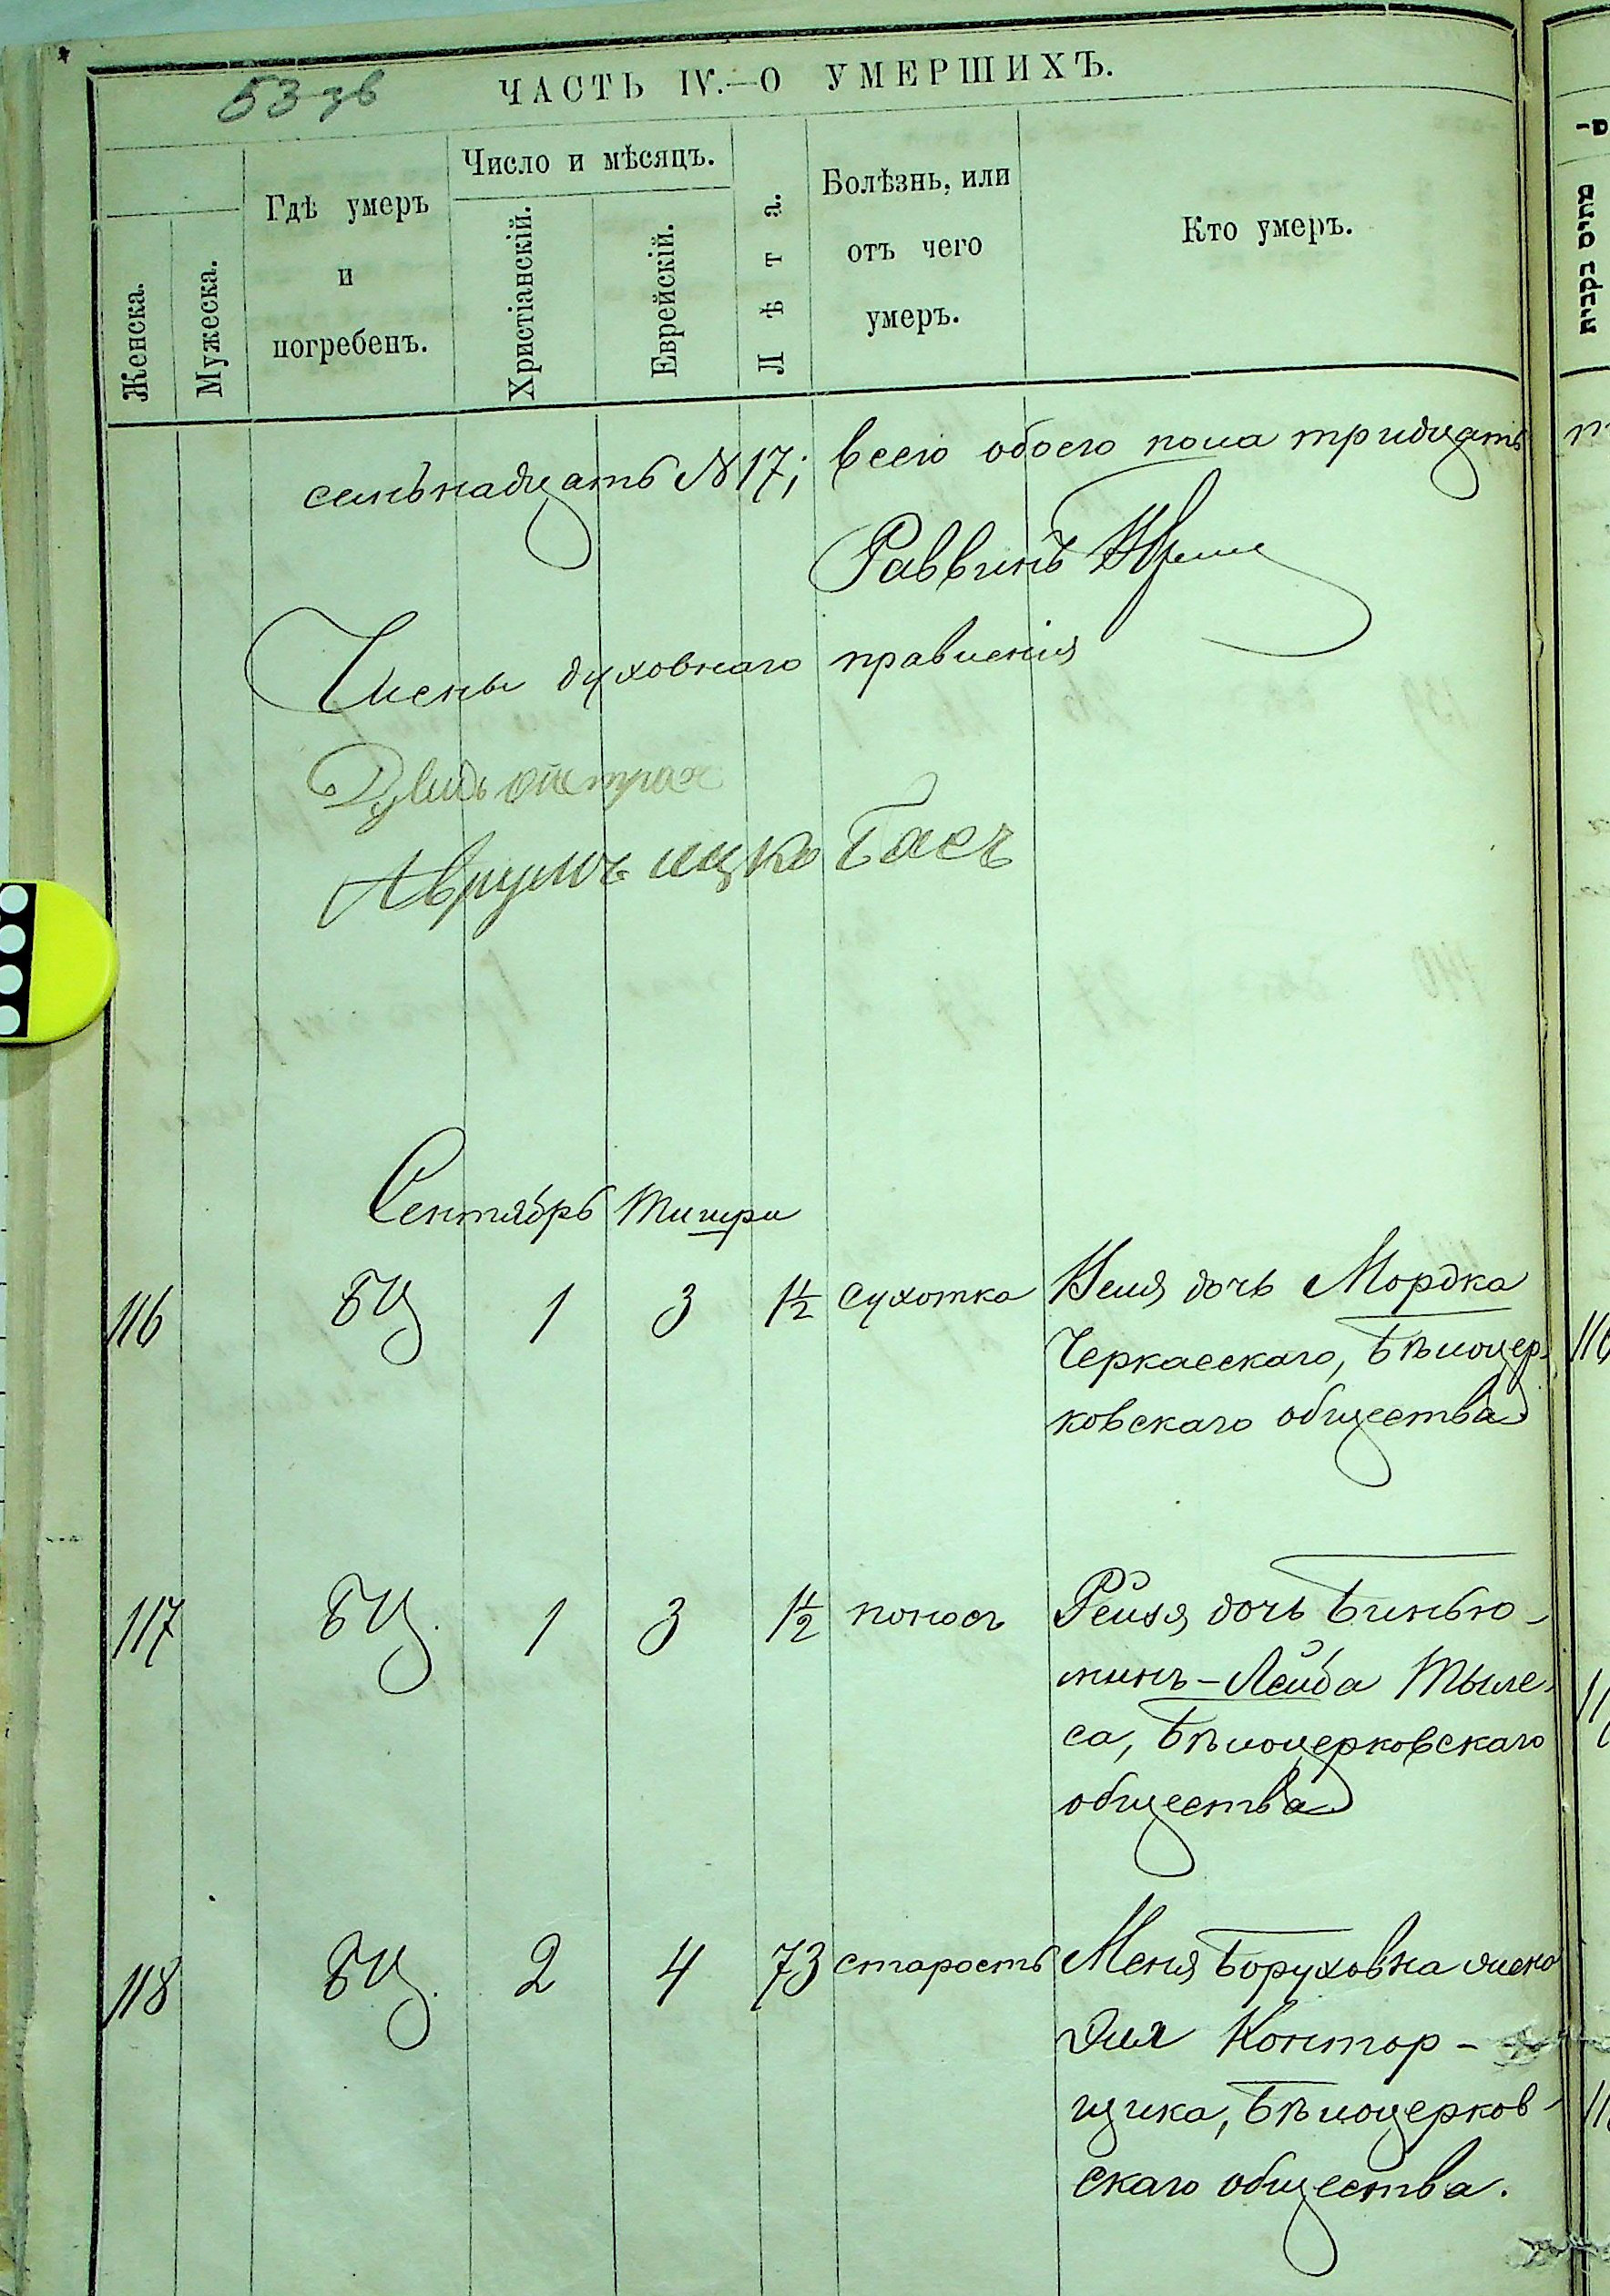 53 зв
ЧАСТЬ IV.—О УМЕРШИХЪ.
Женска.
Мужеска.
Гдѣ умеръ
и
погребенъ.
Число и мѣсяцъ.
Христіанскій.
Еврейскій.
Лѣта.
Болѣзнь, или
отъ чего
умеръ.
Кто умеръ.
семьнадцать № 17; всего обоего пола тридцать
Раввинъ
Члены духовнаго правленія
Аврумъ ицко Басъ
Сентябрь Тишри
116 БЦ 1 3 1½ сухотка Неля дочь Мордка
Черкасскаго, Бѣлоцер-
ковскаго общества
117 БЦ. 1 3 1½ поносъ Рейзя дочь Бинью-
минъ-Лейба Тыле-
са, Бѣлоцерковскаго
общества
118 БЦ. 2 4 73 старость Меня Боруховна жена
Эля Контор-
щика, Бѣлоцерков-
скаго общества.